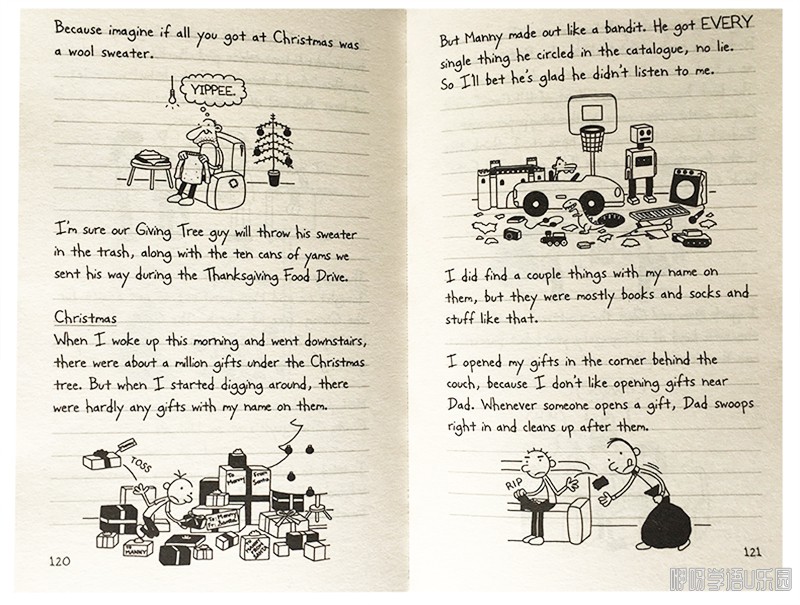 Because imagine if all you got at Christmas was
a wool sweater.
YIPPEE.
I'm sure our Giving Tree guy will throw his sweater
in the trash, along with the ten cans of yams we
sent his way during the Thanksgiving Food Drive.
Christmas
When I woke up this morning and went downstairs,
there were about a million gifts under the Christmas
tree. But when I started digging around, there
were hardly any gifts with my name on them.
TOSS
To
Manny
From
Santa
To Manny
TO
MANNY
120
But Manny made out like a bandit. He got EVERY
single thing he circled in the catalogue, no lie.
So I'll bet he's glad he didn't listen to me.
I did find a couple things with my name on
them, but they were mostly books and socks and
stuff like that.
I opened my gifts in the corner behind the
couch, because I don't like opening gifts near
Dad. Whenever someone opens a gift, Dad swoops
right in and cleans up after them.
RIP
121